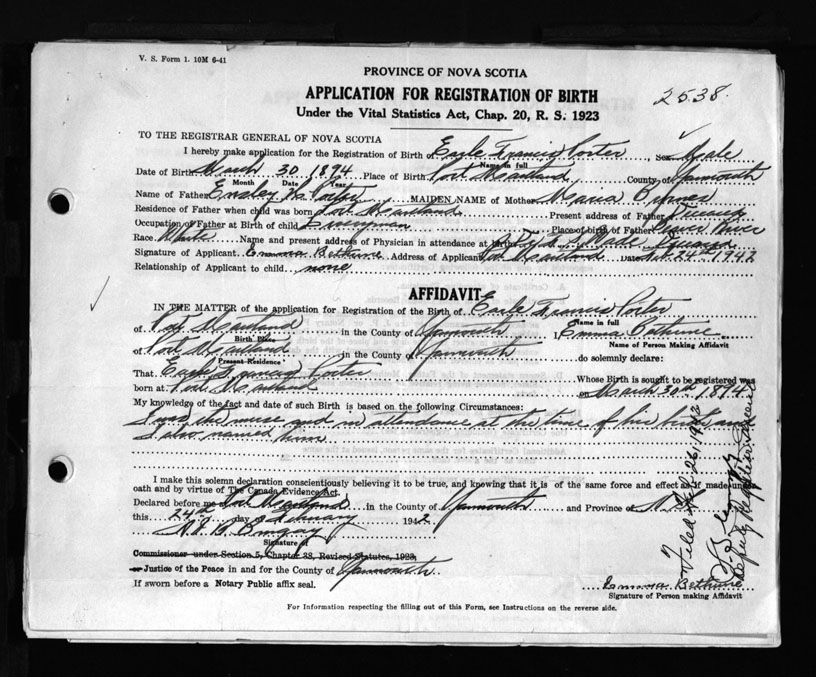 V. S. Form 1. 10M 6-41
PROVINCE OF NOVA SCOTIA
APPLICATION FOR REGISTRATION OF BIRTH
2538.
Under the Vital Statistics Act, Chap. 20, R. S. 1923
TO THE REGISTRAR GENERAL OF NOVA SCOTIA
I hereby make application for the Registration of Birth of Earle Francis Porter Sex Male
Name in full
Date of Birth March 30 1894 Place of Birth Port Maitland County of Yarmouth
Month Date Year
Name of Father Porter MAIDEN NAME of Mother Maria
Residence of Father when child was born Port Maitland Present address of Father Deceased
Occupation of Father at Birth of child Liveryman Place of birth of Father Beaver River
Race White Name and present address of Physician in attendance at Birth Wade Deceased
Signature of Applicant Emma Bethune Address of Applicant Port Maitland Date Feb. 24th 1942
Relationship of Applicant to child none
AFFIDAVIT
IN THE MATTER of the application for Registration of the Birth of Earle Francis Porter
Name in full
of Port Maitland in the County of Yarmouth I, Emma Bethune
Birth Place
Name of Person Making Affidavit
of Port Maitland in the County of Yarmouth do solemnly declare:
Present Residence
That Earle Francis Porter Whose Birth is sought to be registered was
born at Port Maitland on March 30th 1894
My knowledge of the fact and date of such Birth is based on the following Circumstances:
I was the nurse and in attendance at the time of his birth and
I also named him
I make this solemn declaration conscientiously believing it to be true, and knowing that it is of the same force and effect as if made under
oath and by virtue of The Canada Evidence Act.
Declared before me Port Maitland in the County of Yarmouth and Province of N. S.
this 24th day of February 1942
Signature of
Commissioner under Section 5, Chapter 38, Revised Statutes, 1923,
or Justice of the Peace in and for the County of Yarmouth
If sworn before a Notary Public affix seal.
Emma Bethune
Signature of Person making Affidavit
For Information respecting the filling out of this Form, see Instructions on the reverse side.
Filed Feb. 26, 1942
Deputy Registrar General